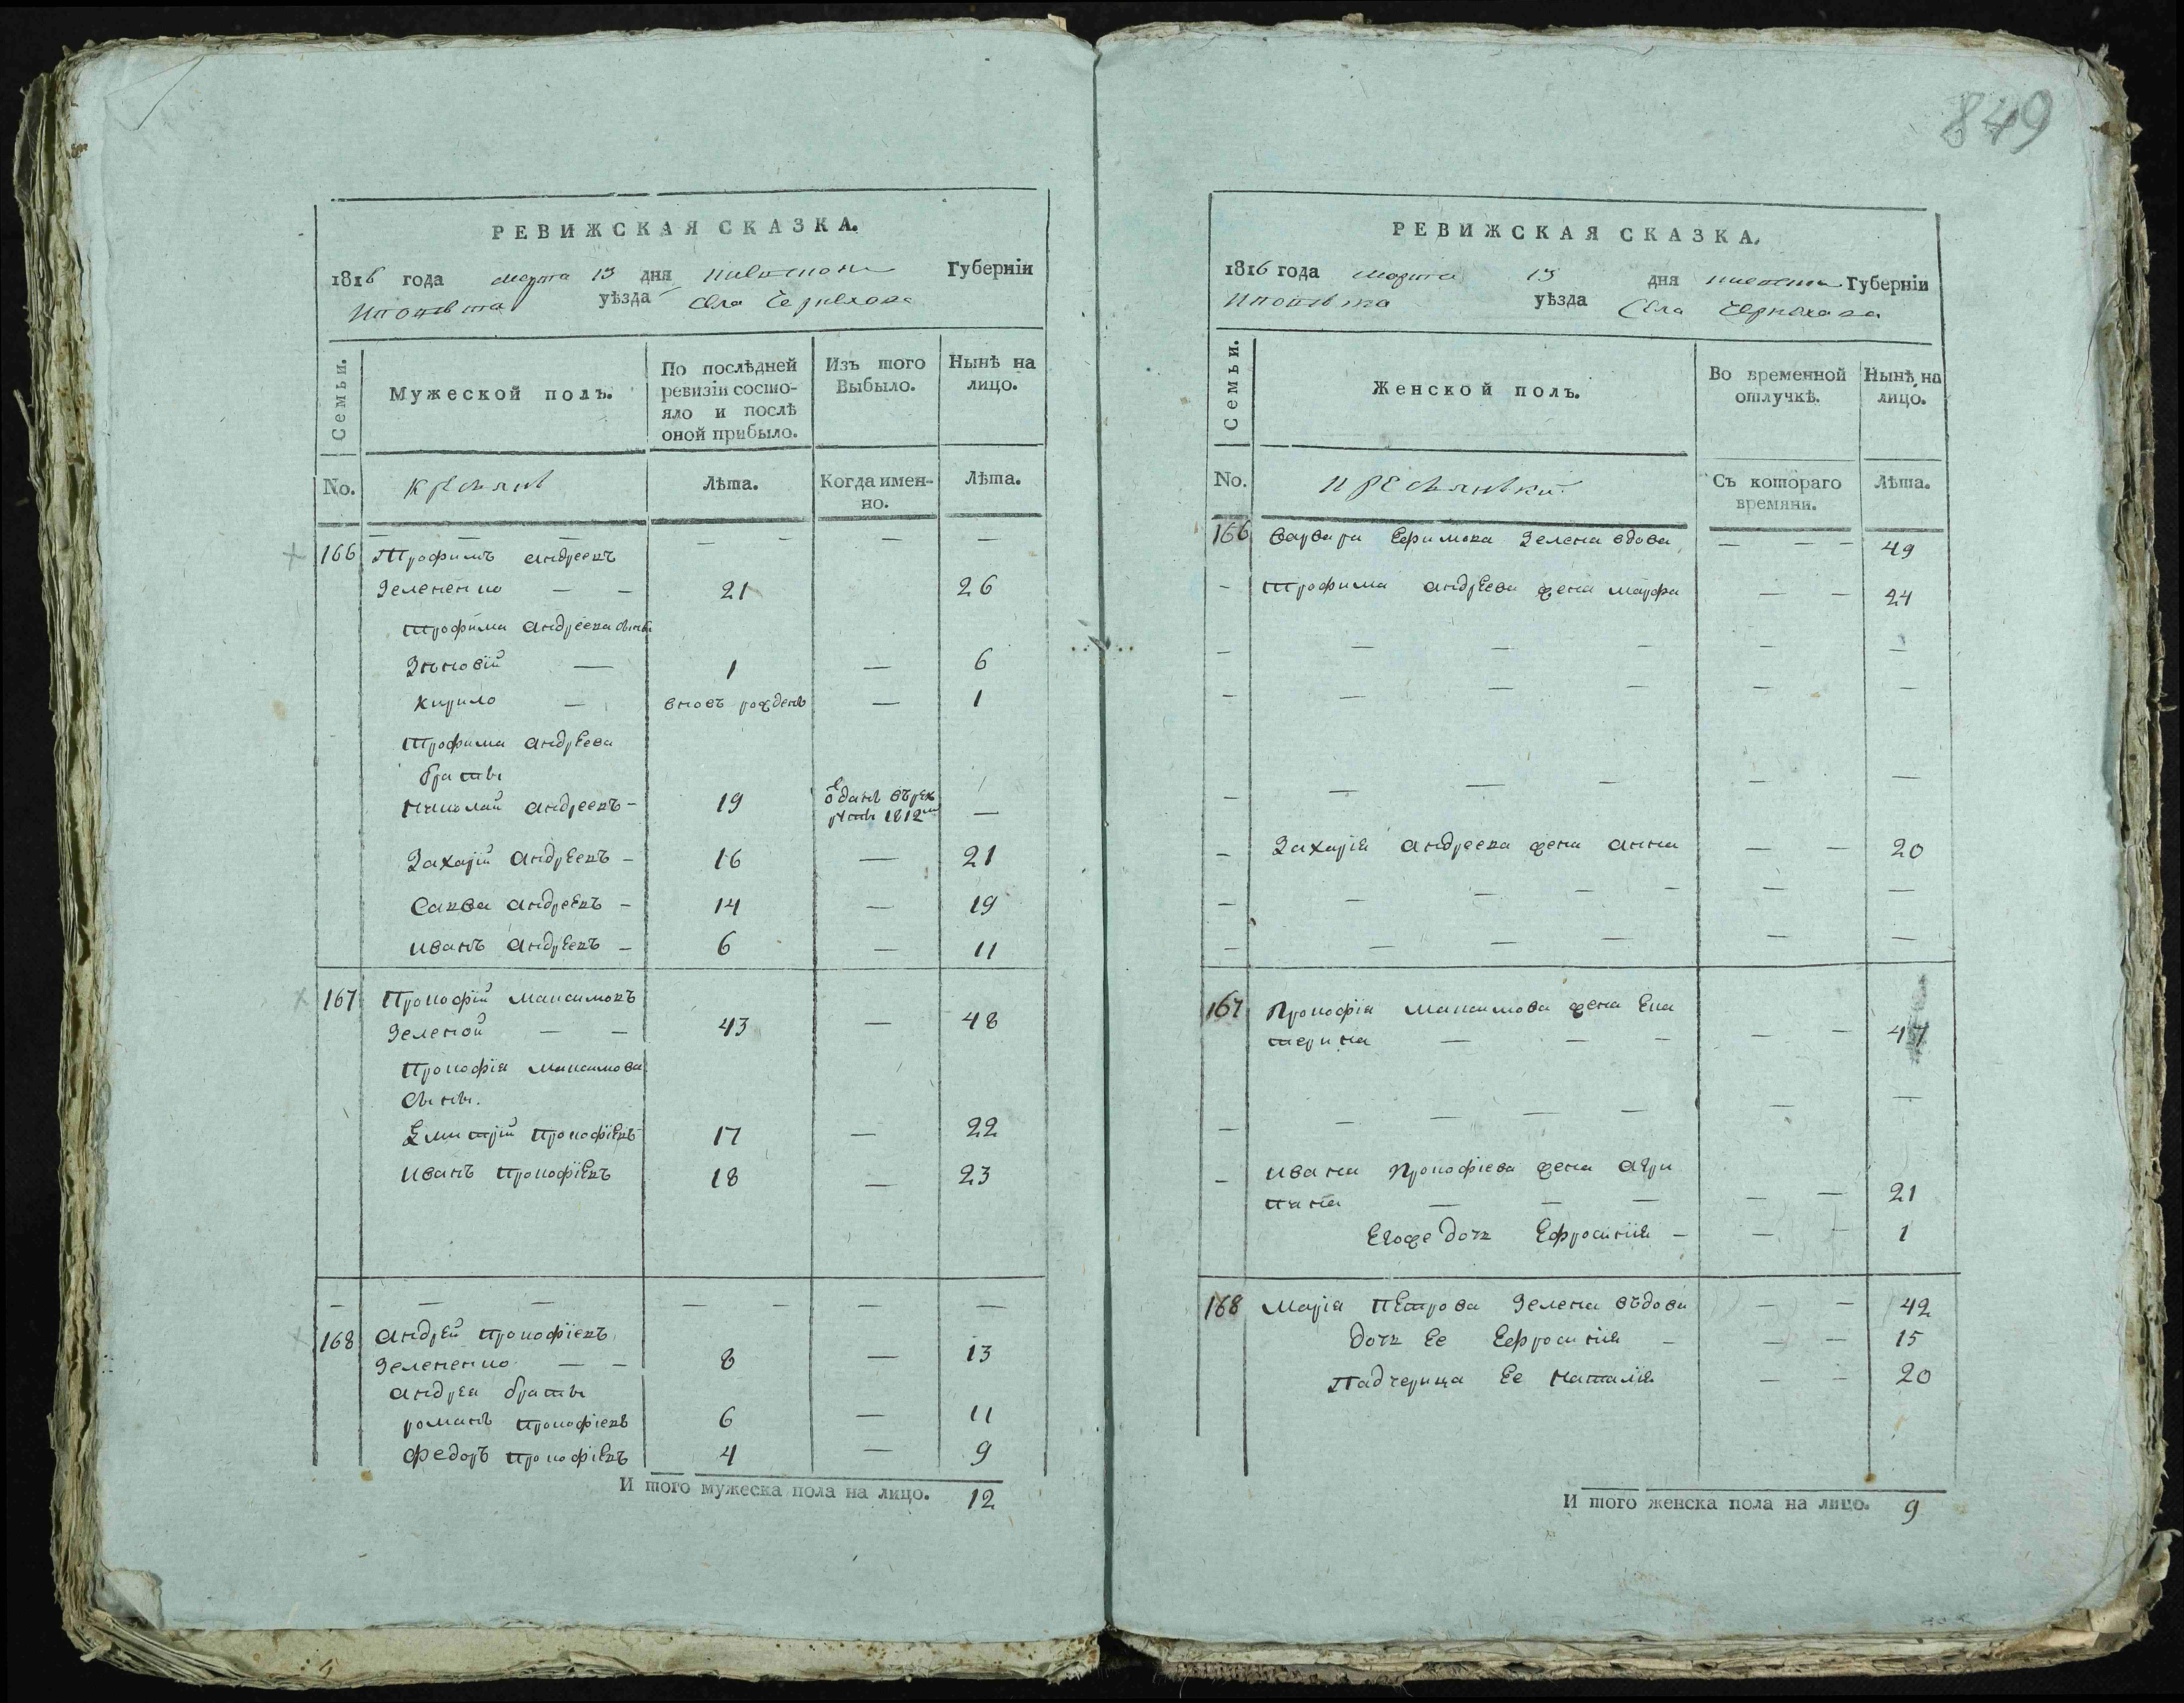 849
РЕВИЖСКАЯ СКАЗКА.
1816 года марта 13 дня Губерніи
уѣзда села
Семьи.
Мужеской полъ.
По послѣдней
ревизіи состо-
яло и послѣ
оной прибыло.
Изъ того
Выбыло.
Нынѣ на
лицо.
No.
Лѣта.
Когда имен-
но.
Лѣта.
166 Трофимъ андреевъ
Зелененко — — 21 26
трофима андреева сыны
Зѣновій — 1 — 6
кирило — вновъ рожденъ — 1
трофима андреева
браты
николай андреевъ - 19 въ рек
1812 —
Захарій андреевъ - 16 — 21
Савва андреевъ - 14 — 19
иванъ андреевъ - 6 — 11
167 Прокофій максимовъ
Зеленой — — 43 — 48
Прокофія максимова
сыны.
Дмитрій прокофіевъ 17 — 22
иванъ прокофіевъ 18 — 23
168 андрей прокофіевъ
Зелененко — — 8 — 13
андрея браты
романъ прокофіевъ 6 — 11
федоръ прокофіевъ 4 — 9
И того мужеска пола на лицо. 12
РЕВИЖСКАЯ СКАЗКА.
1816 года марта 13 дня Губерніи
уѣзда села
Семьи.
Женской полъ.
Во временной
отлучкѣ.
Нынѣ на
лицо.
No.
Съ котораго
времяни.
Лѣта.
166 варвара Ефимова Зелена вдова — — — 49
- трофима андреева жена марфа — — 24
- Захарія андреева жена анна — — 20
167 Прокофія максимова жена Ека
терина — — — — — 47
- ивана прокофіева жена агри
пина — — — — — 21
Егоже дочь Ефросинія — — — 1
168 Марія петрова Зелена въдова — — 42
дочь Ее Ефросинія — — — 15
Падчерица Ее наталія — — 20
И того женска пола на лицо. 9